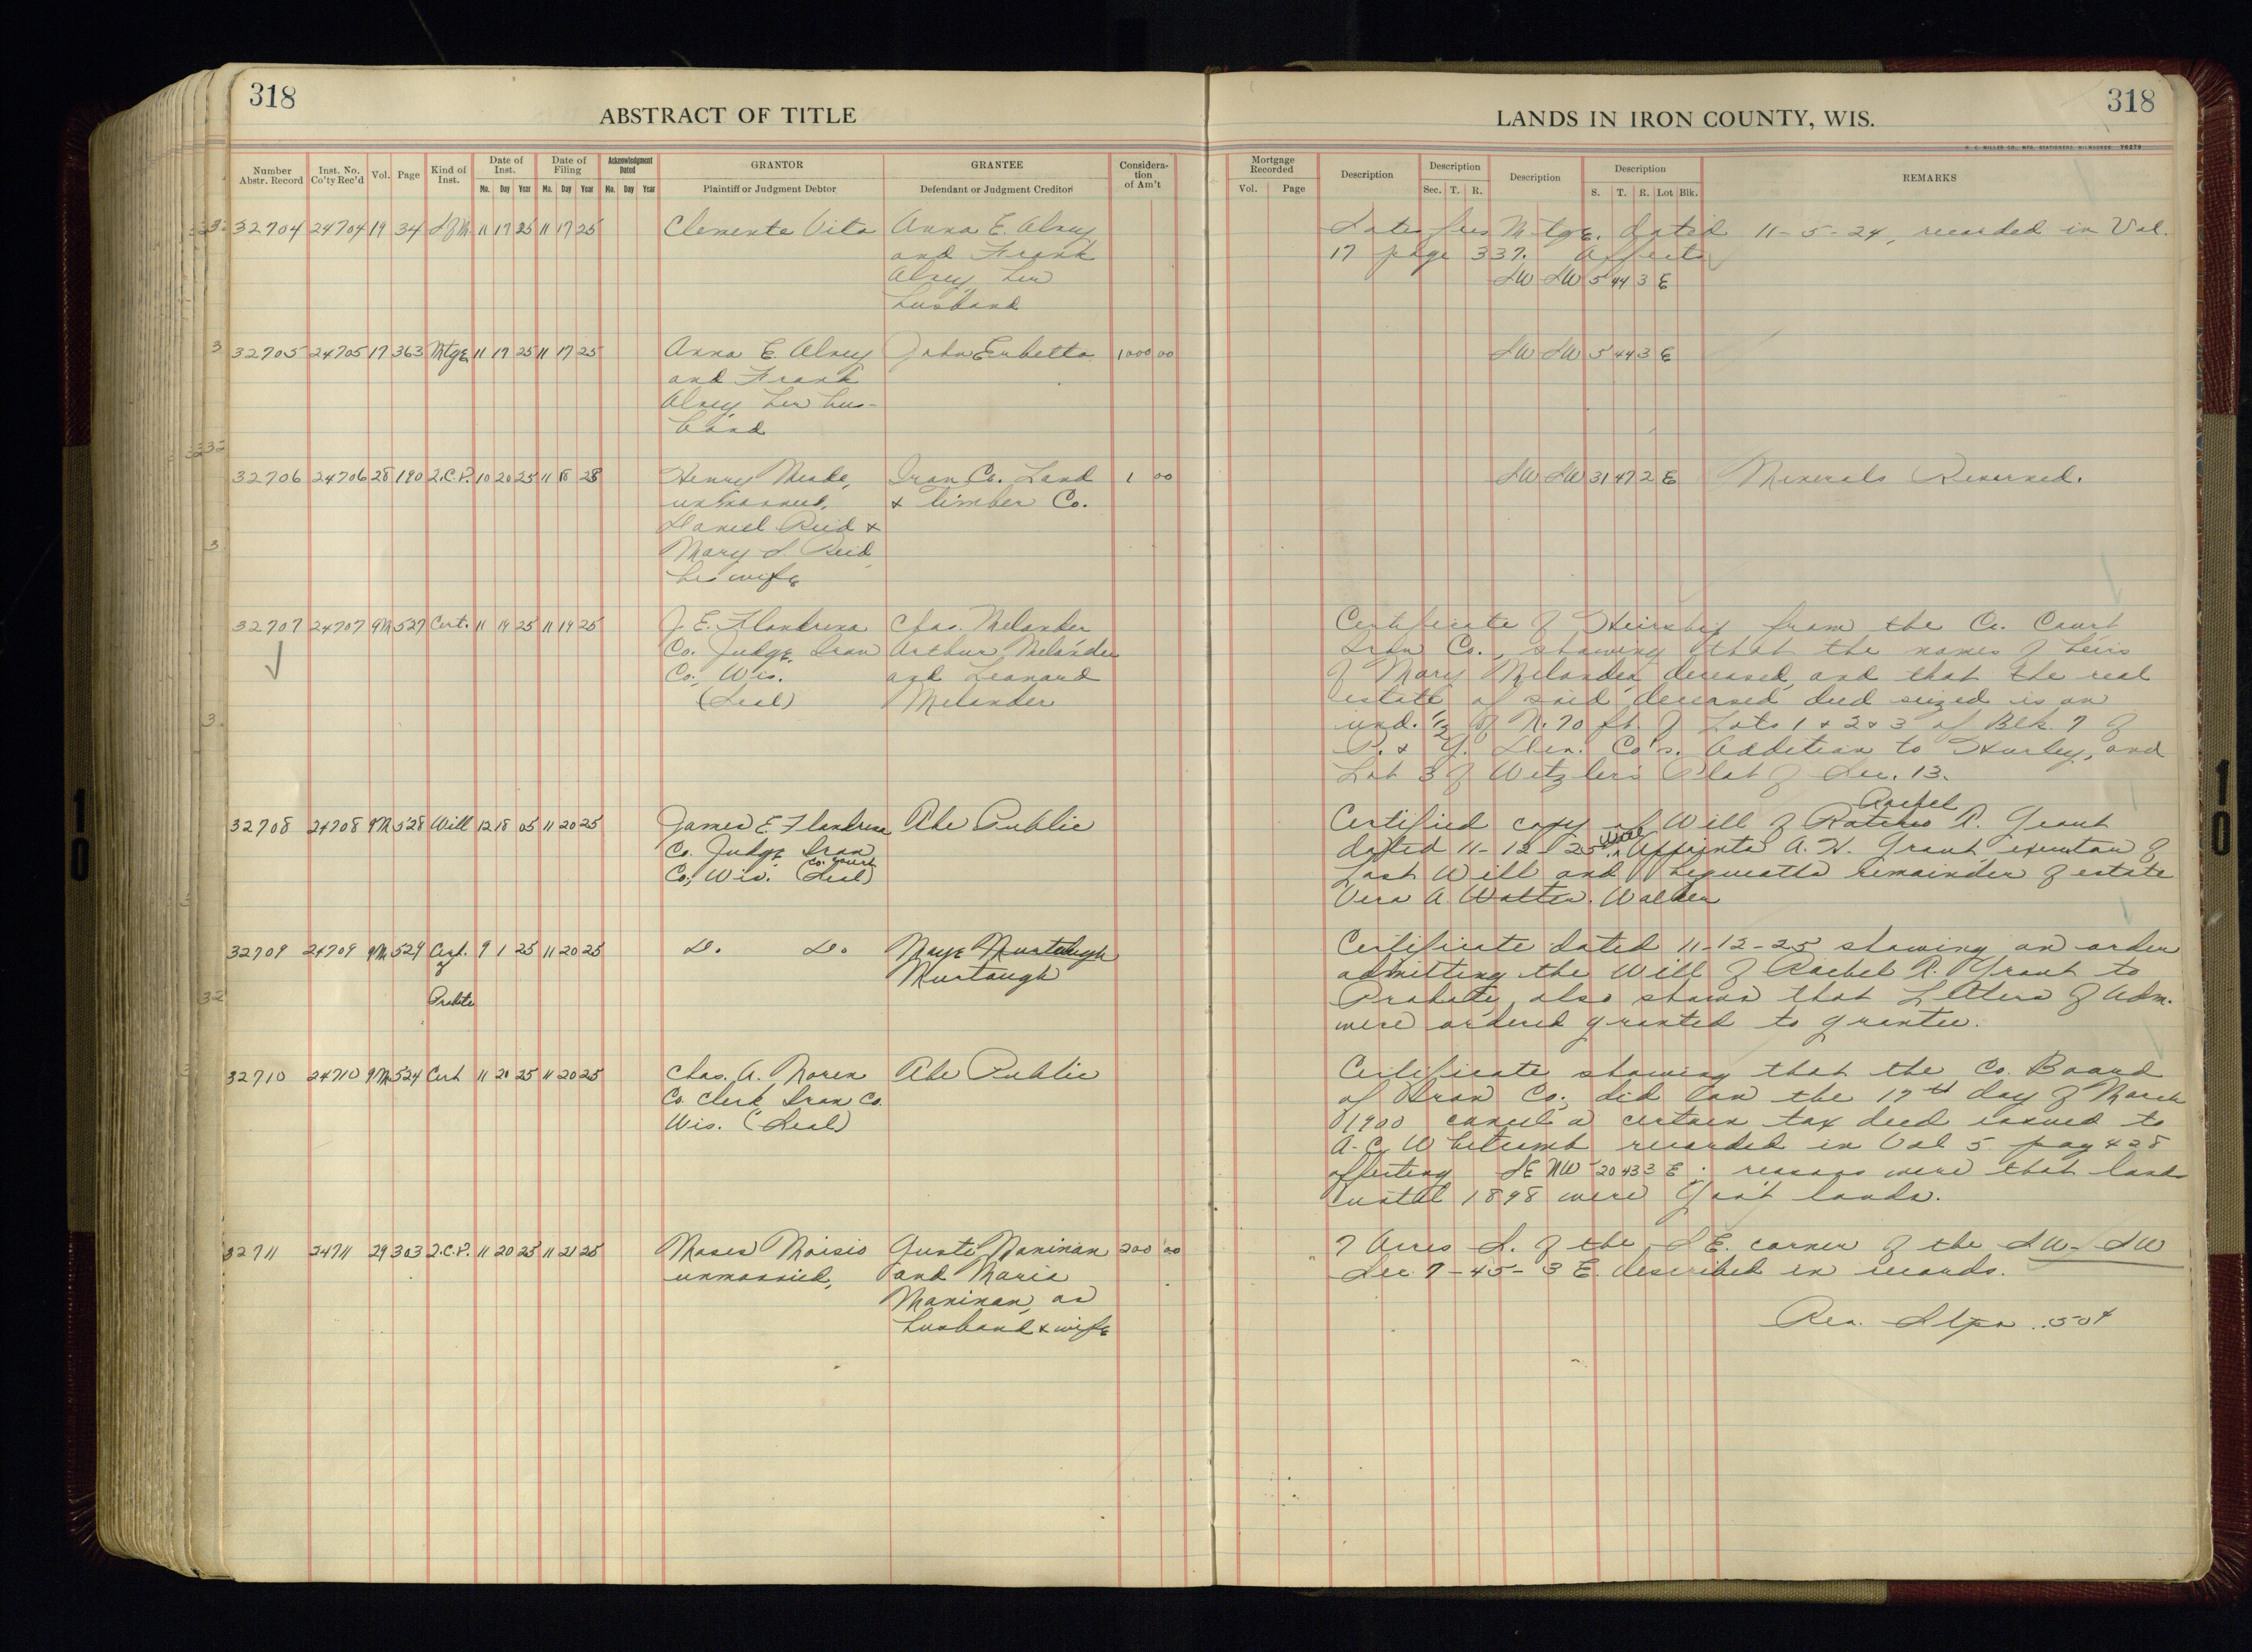 318
ABSTRACT OF TITLE
LANDS IN IRON COUNTY, WIS.
318
H. C. MILLER CO., MFG. STATIONERS, MILWAUKEE
Number Abstr. Record
Inst. No. Co'ty Rec'd
Vol.
Page
Kind of Inst.
Date of Inst.
Mo. Day Year
Date of Filing
Mo. Day Year
Acknowledgment Dated
Mo. Day Year
GRANTOR
Plaintiff or Judgment Debtor
GRANTEE
Defendant or Judgment Creditor
Considera-
tion
of Am't
Mortgage Recorded
Vol. Page
Description
Description
Sec. T. R.
Description
Description
S. T. R. Lot Blk.
REMARKS
32704 24704 19 34 S of M. 11 17 25 11 17 25 Clemente Vita Anna E. Alney
and Frank
Alney, her
husband
Satisfies Mtge. dated 11-5-24, recorded in Vol.
17 page 337. Affects
SW SW 5 44 3 E
32705 24705 17 363 Mtge 11 17 25 11 17 25 Anna E. Alney John Eubetta 1000 00 SW SW 5 44 3 E
and Frank
Alney, her hus-
band
32706 24706 28 190 Q.C.P. 10 20 25 11 18 28 Henry Meade, Iron Co. Land 1 00 SW SW 31 47 2 E Minerals Reserved.
unmarried, & Timber Co.
Daniel Reid &
Mary S. Reid,
his wife
32707 24707 9M 527 Cert. 11 19 25 11 19 25 J. E. Flandrena Chas. Melander
Co. Judge Iron Arthur Melander
Co., Wis. and Leonard
(Seal) Melander
Certificate of Heirship from the Co. Court
Iron Co., showing that the names of heirs
of Mary Melander, deceased, and that the real
estate of said deceased died seized is an
und. 1/2 of N. 70 ft. of Lots 1 & 2 & 3 of Blk. 7 of
P. & Y. Co's. Addition to Hurley, and
Lot 3 of Wetzler's Plat of Sec. 13.
32708 24708 9M 528 Will 12 18 05 11 20 25 James E. Flandrena The Public
Co. Judge Iron
Co. Court
Co., Wis. (Seal)
Rachel
Certified copy of Will of R. Grant
dated 11-12-25. Will Appoints A. H. Grant executor of
Last Will and bequeaths remainder of estate
Vera A. Walter. Walker
32709 24709 9M 529 Cert. 9 1 25 11 20 25 Do. Do. Maye Murtaugh
of Murtaugh
Probate
Certificate dated 11-12-25 showing an order
admitting the Will of Rachel R. Grant to
Probate, also shows that Letters of Adm.
were ordered granted to grantee.
32710 24710 9M 524 Cert 11 20 25 11 20 25 Chas. A. Noren The Public
Co. Clerk Iron Co.
Wis. (Seal)
Certificate showing that the Co. Board
of Iron Co., did on the 17th day of March
1900 cancel a certain tax deed issued to
A. C. Whitcomb recorded in Vol 5 pag 428
affecting SE NW 20 43 3 E; reasons were that land
until 1898 were Gov't lands.
32711 24711 29 303 Q.C.P. 11 20 25 11 21 25 Moses Moisio Gusti Maninan 200 00
unmarried, and Maria
Maninan, as
husband & wife
7 Acres S. of the SE. corner of the SW - SW
Sec. 7 - 45 - 3 E. described in records.
Rev. Stps .50¢